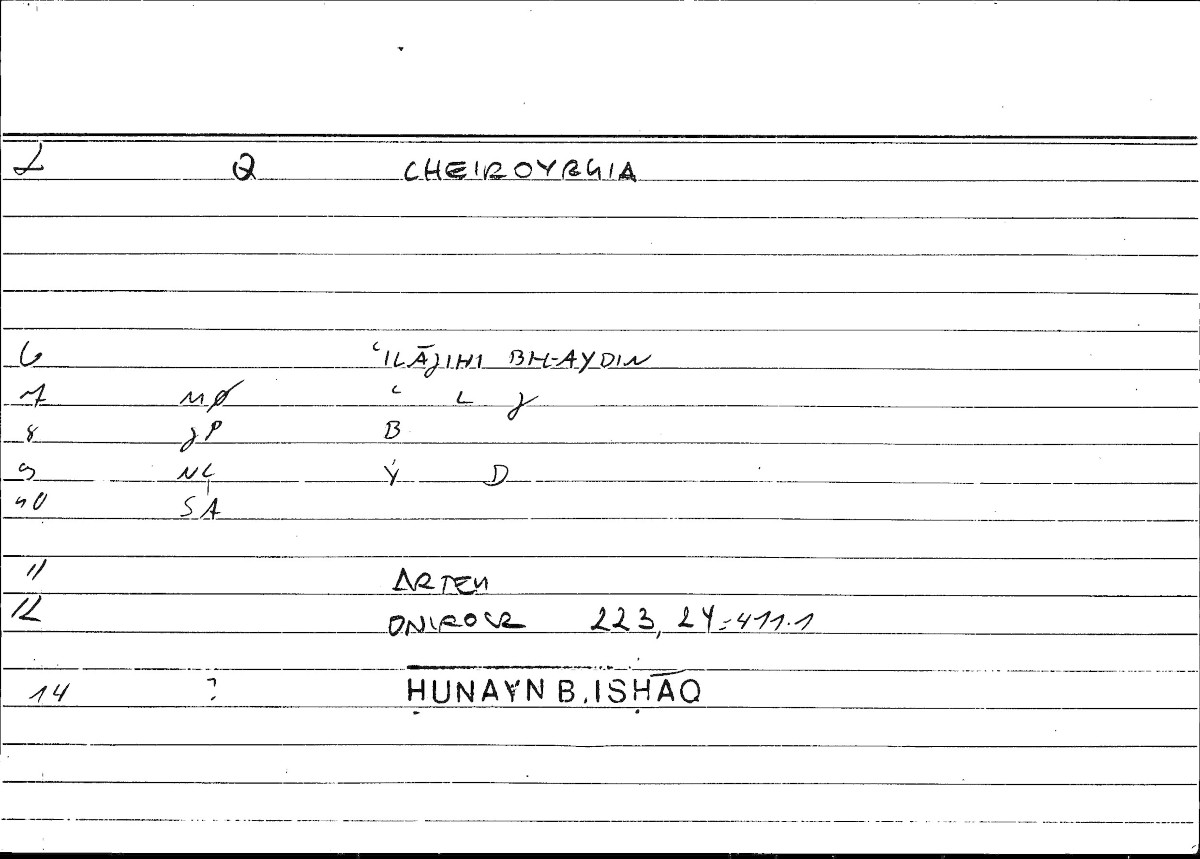 2 Q CHEIROYRGIA
6 ʿILĀJIHI BH-AYDIN
7 MØ ʿ L J
8 JP B
9 NC Y D
10 SA
11 ARTEM
12 ONIROCR 223, 24=411.1
14 ? ḤUNAYN B. ISḤĀQ